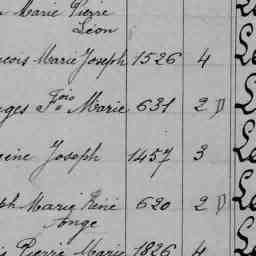 Marie Pierre
Léon
çois Marie Joseph 1526 4
ges Fois Marie 631 2 D
ène Joseph 1457 3
ph Marie René 620 2 D
Ange
Pierre Marie 1826 4